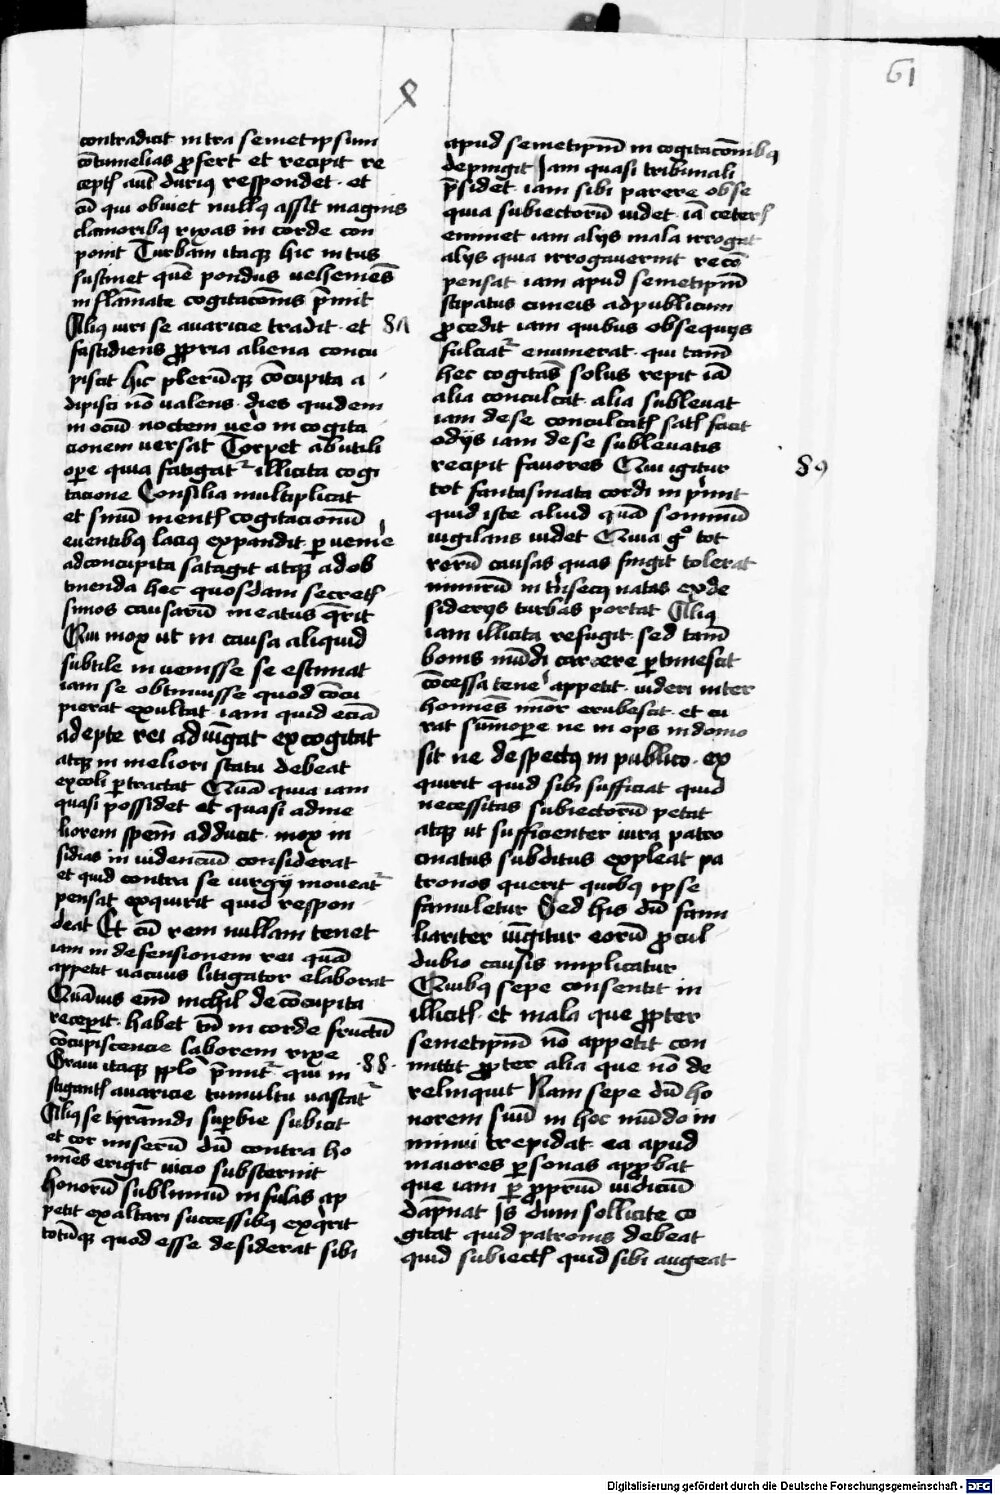 61
contradicit intra semetipsum
cōtumelias ꝓfert et recipit re
ceptꝭ aūt duriꝰ respondet · et
cū qui obuiet nullꝰ assit magnis
clamoribꝰ rixas in corde con
ponit Turbam itaqꝫ hic intus
sustinet quē pondus uehemēs
inflāmate cogitacōnis p̄mit
Aliꝰ iuri se auaricie tradit · et
fastidiens ꝓpria aliena concu
piscit hic plerūqꝫ cōcupita a
dipisci nō valens · dies quidem
in ociū noctem ueo in cogita
cionem versat Torpet ab utili
oꝑe quia fatigatᷣ illicita cogi
tacione Consilia multiplicat
et sinū mentꝭ cogitacionū
euentibꝰ laciꝰ expandit ꝑuenie
ad concupita satagit atqꝫ ad ob
tinenda hec quosdam secretꝭ
simos causarū meatus qͥrit
Qui mox ut in causa aliquid
subtile inuenisse se estimat
iam se obtinuisse quod cōcu
pierat exultat iam quid eciā
adepte rei adiūgat excogitat
atqꝫ in meliori statu debeat
excoli ꝑtractat Quā quia iam
quasi possidet et quasi ad me
liorem spem adducit · mox in
sidias inuidenciū considerat
et quid contra se iurgij moueatᷣ
pensat exquirit quid respon
deat Et cū rem nullam tenet
iam in defensionem rei quā
appetit uacuus litigator elaborat
Quāuis enī nichil de cōcupita
receꝑit · habet tn̄ in corde fructū
cōcupiscencie laborem rixe
Graui itaqꝫ p̄mitᷣ qui in
stigantꝭ auaricie tumultu uastatᷣ
Aliꝰ se tyrānidi suꝑbie subicit
et cor miserū dū contra ho
mīes erigit uicio substernit
honorū sublimiū infulas ap
petit exaltari successibꝰ exqͥrit
totūqꝫ quod esse desiderat sibi
apud semetipm̄ in cogitacōnibꝰ
depingit Iam quasi tribunali
p̄sidet iam sibi parere obse
quia subiectorū uidet · iā ceterꝭ
eminet iam alijs mala irrogat
alijs quia irrogauerint recō
pensat iam apud semetipm̄
stipatus cuneis ad publicum
ꝓcedit iam quibus obsequijs
fulciatᷣ enumerat · qui tam̄
hec cogitās solus repit iā
alia conculcat · alia subleuat
iam de se conculcatꝭ satꝭ facit
odijs iam de se subleuatis
recipit fauores Qui igitur
tot fantasmata cordi inp̄mit
quid iste aliud quā sommū
uigilans uidet Quia gͦ tot
rerū causas quas fingit tolerat
nimirū intrinsecꝰ natas ex de
siderijs turbas portat Aliꝰ
iam illicita refugit · sed tam̄
bonis mūdi carcere ꝑtimescit
cōcessa tene appetit · uideri inter
homīes minor erubescit · et cu
rat sūmoꝑe ne inops in domo
sit ne despectꝰ in publico · ex
quirit quid sibi sufficiat quid
necessitas subiectorū petat
atqꝫ ut sufficienter iura patro
cinatus subditus expleat pa
tronos querit quibꝰ ipse
famuletur Sed his dū fami
liariter iūgitur eorū ꝓcul
dubio causis implicatur
Quibꝰ sepe consentit in
illicitꝭ · et mala que ꝓpter
semetipm̄ nō appetit con
mittit ꝓpter alia que nō de
relinquit Nam sepe dū ho
norem suū in hoc mūdo in
minui trepidat · ea apud
maiores ꝑsonas apꝓbat
que iam ꝑ ꝓpriū iudiciū
dāpnat Is dum sollicite co
gitat quid patronis debeat
quid subiectꝭ quid sibi augeat
Digitalisierung gefördert durch die Deutsche Forschungsgemeinschaft - DFG